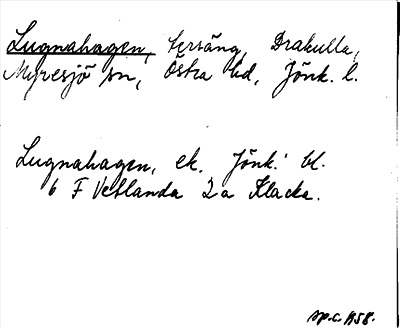 Lugnahagen, hrsäng, Drakulla,
Myresjö sn, Östra hd, Jönk. l.
Lugnahagen, ek. Jönk: bl.
6 F Vetlanda 2 a Klacka.
sp.c. 1958.